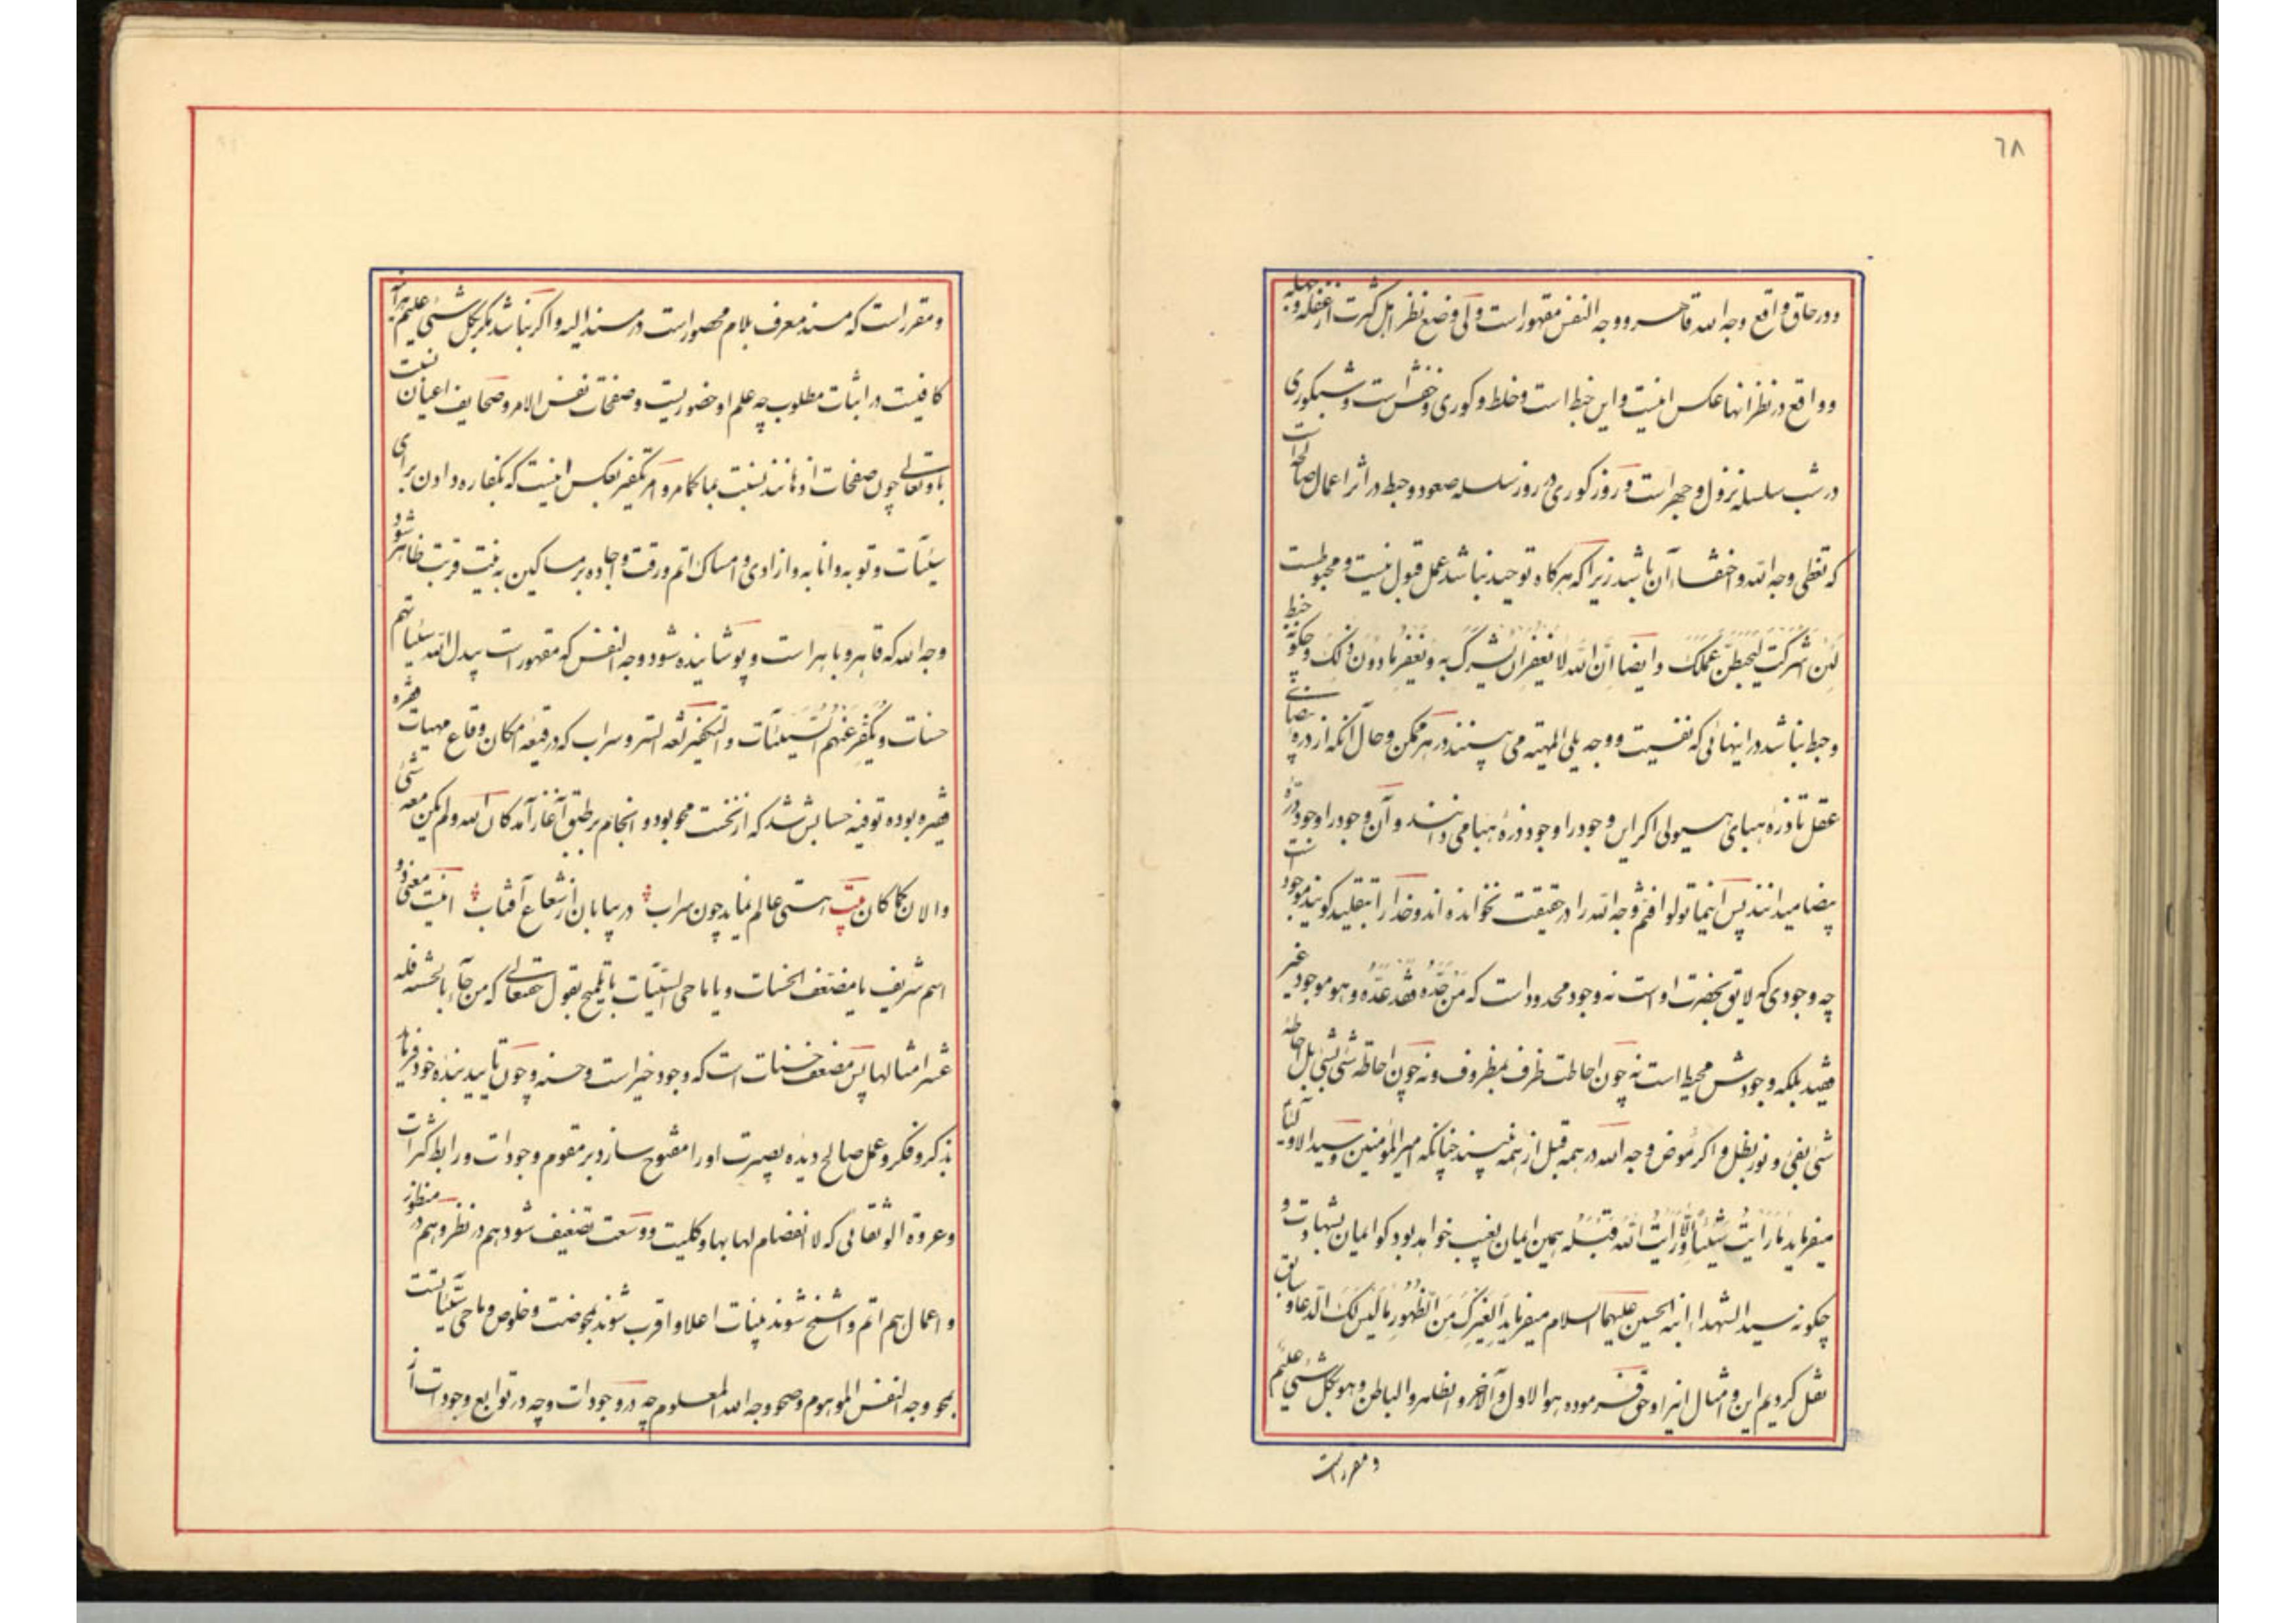 ٦٨
ودر حاق واقع وجه الله قاهر و وجه النفس مقهور است ولی وضع نظر اهل کثرت از غفله و جهله
و واقع در نظر آنها عکس اینست و این خبط است و خلط و کوری و خفش است و شبکوری
در شب سلسله نزول و جهر است و روز کوری در روز سلسله صعود و حبط در اثر اعمال صالحه است
که تغطی وجه الله و اختفاء آن باشد زیرا که هرکاه توحید نباشد عمل قبول نیست و محبوطست
لَئِن اشرکت لیحبطنّ عملک و ایضا اِنّ الله لا یغفر ان یشرک به و یغفر مادون ذلک و چکونه خبط
و حبط نباشد در اینهائی که نفسیت و وجه یلی المهیه می بینند در هر ممکن و حال آنکه از دره بیضای
عقل تا ذرهٔ هبای هیولی اکر این وجود را وجود ذرهٔ هبا می دانند و آن وجود را وجود درهٔ
بیضا میدانند پس اینما تولوا فثم وجه الله را در حقیقت نخوانده اند و خدا را بتقلید کویند موجود است
چه وجودی که لایق بحضرت اوست نه وجود محدود است که مَن حَدّهُ فقد عَدّه و هو موجود غیر
فقید بلکه وجودش محیط است نه چون احاطت ظرف بمظروف و نه چون احاطه شیٔ بشیٔ بل احاطهٔ
شیٔ بفیٔ و نور بظل و اکر مُوض وجه الله در همه قبل از همه نبیند چنانکه امیر المؤمنین و سید الاولیاء
میفرماید مَا رَاَیت شَیئاً الّا وَ رَایت الله قبله همین ایمان بغیب خواهد بود کو ایمان بشهادت و
چکونه سید الشهداء ابنه الحسین علیهما السلام میفرماید اَلِغیرکَ مِنَ الظهورِ مَا لَیس لَکَ الدعا و سابق
نقل کردیم این و امثال اینرا و حق فرموده هو الاول و الآخر و الظاهر و الباطن و هو بکل شئی علیم
و مقرر است
و مقرر است که مسند معرف بلام محصور است در مسند الیه و اکر نباشد مکر بکل شئی علیم هرآینه
کافیست در اثبات مطلوب چه علم او حضوریست و صفحات نفس الامر و صحایف اعیان نسبت
باو تعالی چون صفحات اذهانند نسبت بما کما مر و امر تکفیر بعکس اینست که بکفاره دادن برای
سیّئات و توبه و انابه و ازادی و امساک اتم و رقت و اجاده بر مساکین به نیت قربت ظاهر شود
وجه الله که قاهر و باهر است و پوشانیده شود وجه النفس که مقهور است یبدل الله سیّئاتهم
حسنات و یکفّر عَنهم السیّئات و التکفیر لغه الستر و سراب که در قیعه امکان و قاع مهیات قفره
بوده توفیه حسابش شد که از نخست محو بود و انجام بر طبق آغاز آمد کان الله و لم یکن معه شئ
و الان کما کان بیت هستی عالم نماید چون سراب در بیابان از شعاع آفتاب اینست معنی دو
اسم شریف یا مضعّف الحسنات و یا ماحی السیّئات با تلمیح بقول حقتعالی که من جآء بالحسنه فله
عشر امثالها پس مضعف حسنات است که وجود خیر است و حسنه و چون تایید بنده خود فرماید
بذکر و فکر و عمل صالح دیده بصیرت او را مفتوح سازد بر مقوم وجودات و رابط کثرات
و عروة الوثقائی که لا انفصام لها بها و کلیت و وسعت تضعیف شود هم در نظر و هم در منظور
و اعمال هم اتم و اشبخ شوند بنیات اعلا و اقرب شوند بمحوضت و خلوص و ماحی سیّئاتست
بمحو وجه النفس الموهوم و صحو وجه الله المعلوم چه در وجودات و چه در توابع وجودات از